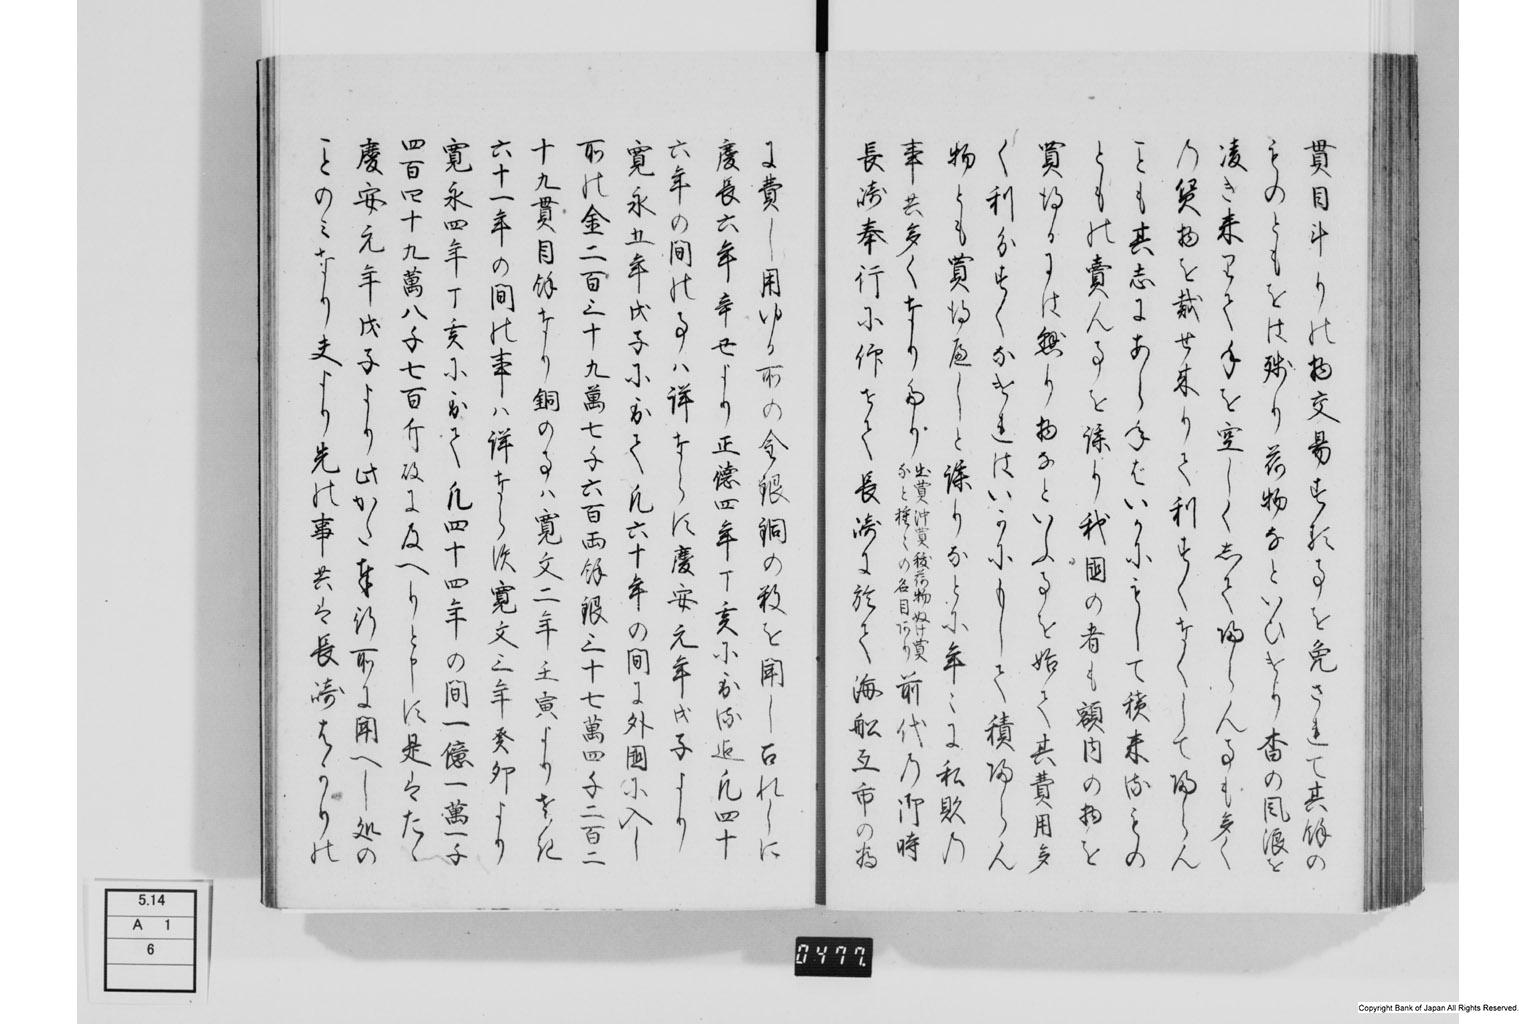 貫目斗りの物交易する事を免されて其餘の
ものともをは残り荷物なといひけり沓の風浪を
凌き来りて手を空しくして帰らん事も多く
乃貨物を載せ来りて利すくなくして帰らん
ことも其志にあらねはいかにもして積来るもの
ともの賣ん事を謀り我國の者も額内の物を
買得るには懸り物なといふ事を始て其費用多
く利分すくなけれはいかにもして積帰らん
物とも買得へしと謀りなとに年々に私販の
事共多くなりたり
出買沖買 荷物ぬけ買
なと種々の名目あり
前代の御時
長崎奉行に仰せて長崎に於て海舶互市の為
に費し用ゆる所の金銀銅の数を問し召れしに
慶長六年辛丑より正徳四年丁亥に至る迄凡四十
六年の間の事ハ詳ならす慶安元年戊子より
寛永五年戊子に至て凡六十年の間に外國に入し
所の金二百三十九萬七千六百両餘銀三十七萬四千二百二
十九貫目餘なり銅の事ハ寛文二年壬寅よりさき
六十一年の間の事ハ詳ならす寛文三年癸卯より
寛永四年丁亥に至て凡四十四年の間一億一萬一千
四百四十九萬八千七百斤に及へりと申す是はたゝ
慶安元年戊子より此かた奉行所に聞へし処の
ことのみなり夫より先の事共は長崎はかりの
5.14
A 1
6
0477.
Copyright Bank of Japan All Rights Reserved.